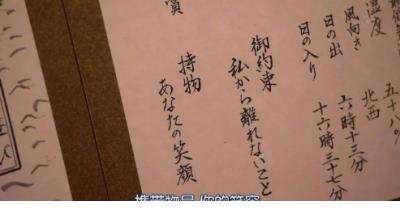 湿度 五十八%
風向き 北西
日の出 六時十三分
日の入り 十六時三十七分
御約束
私から離れないこと
持物
あなたの笑顔
攜帶物品 你的笑容